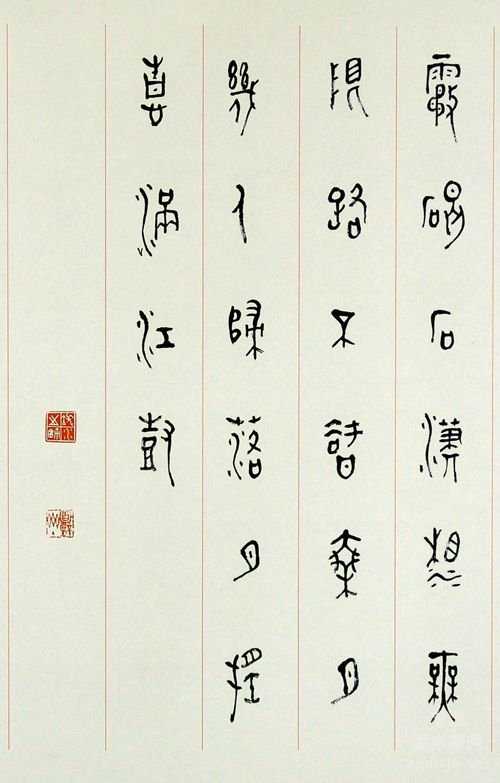 霧碣石瀟湘無
限路不智乘月
幾人歸落月搖
情滿江樹